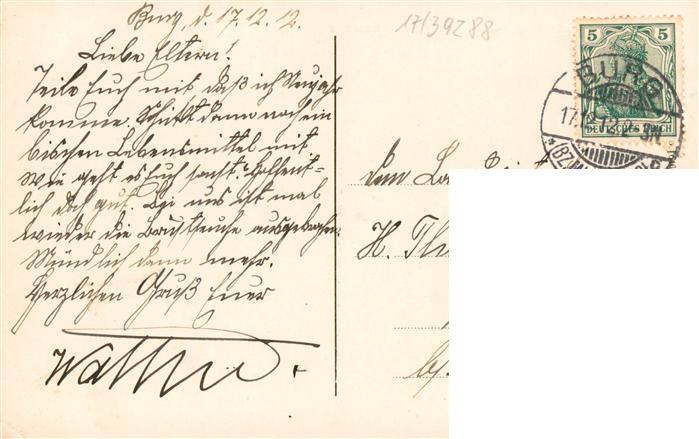 Burg, d. 17.12.12.
Liebe Eltern!
Teile Euch mit, daß ich Neujahr
komme. Schickt dann noch ein
bischen Lebensmittel mit
Wie geht es Euch sonst? Hoffent-
lich doch gut. Bei uns ist mal
wieder die Brustseuche ausgebrochen.
Mündlich dann mehr.
Herzlichen Gruß Euer
Walther.
17/39288
5 5
DEUTSCHES REICH
BURG
17.12.12
dem
H.